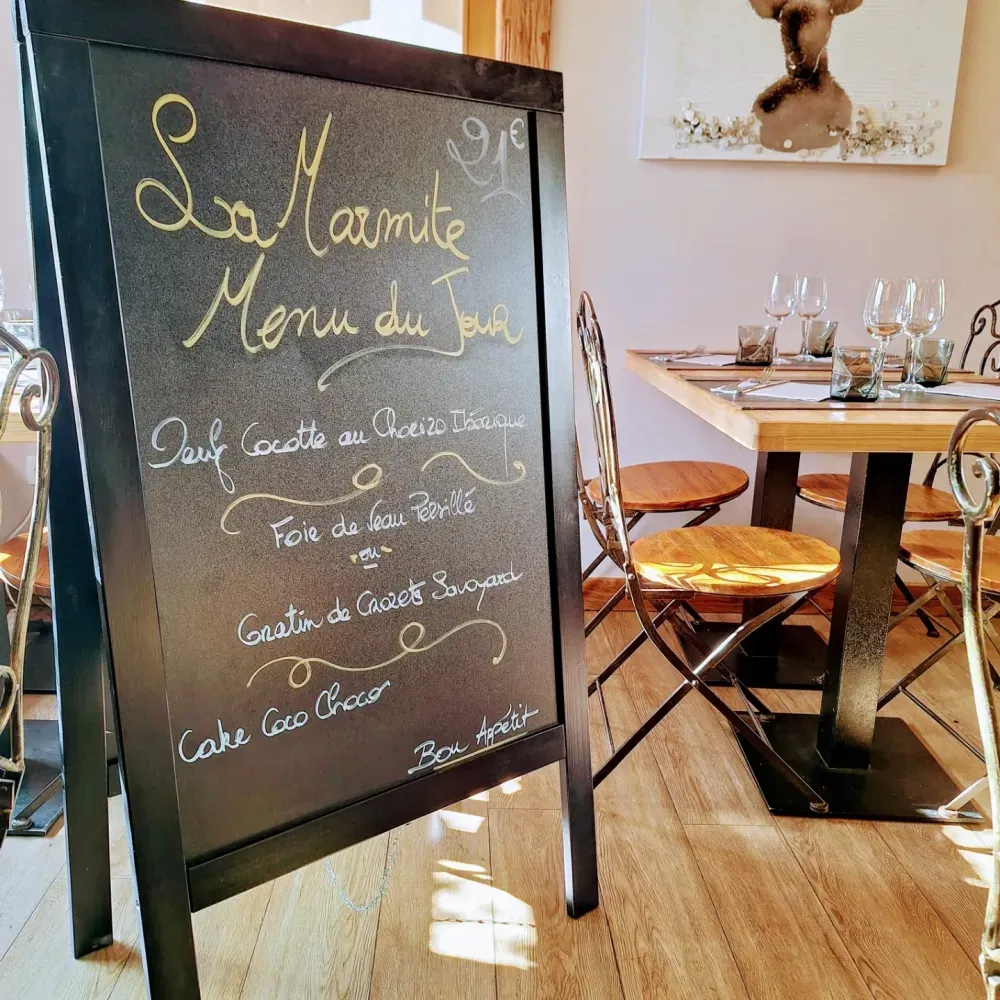 21€
La Marmite
Menu du Jour
Oeuf Cocotte au Chorizo Ibérique
Foie de Veau Persillé
ou
Gratin de Crozets Savoyard
Cake Coco Choco
Bon Appétit